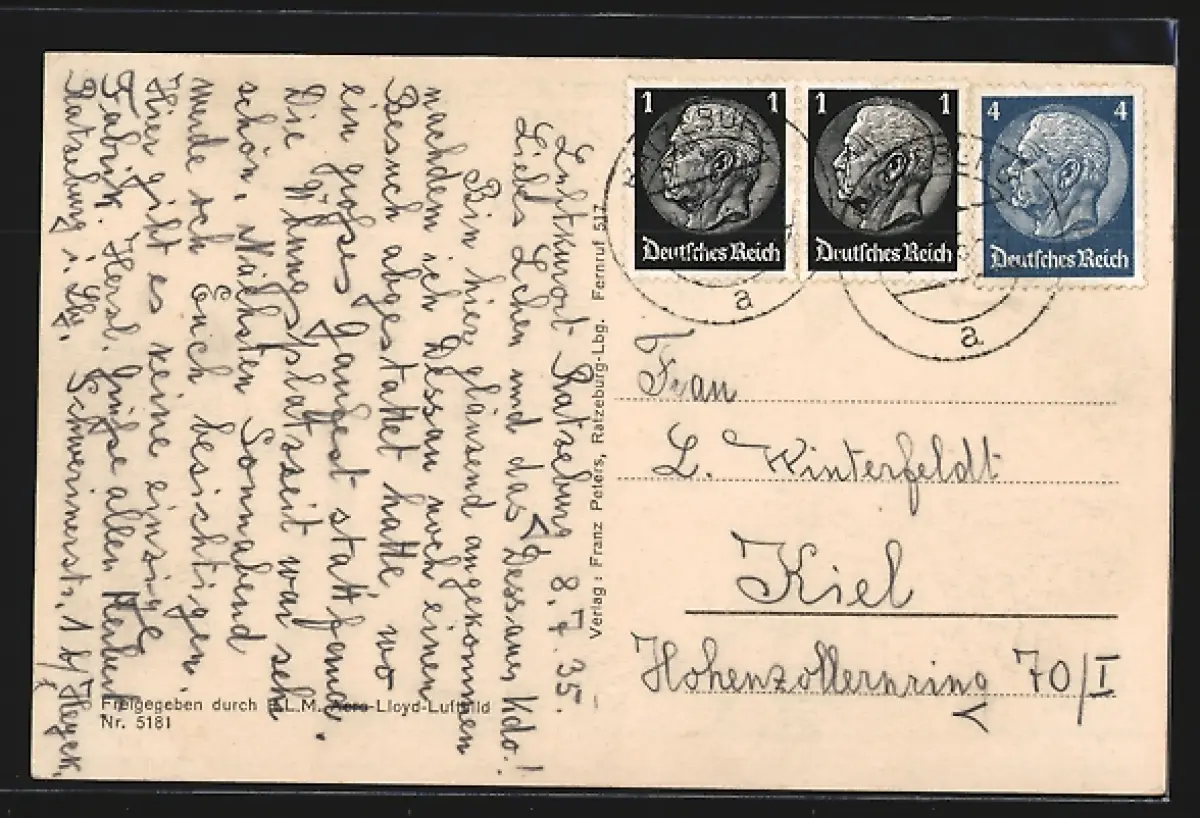 Luftkurort Ratzeburg 8.7.35.
Liebs Lchen und das Dessaur Kdo.!
Bin hier glänzend angekommen
nachdem ich Dessau noch einen
Besuch abgestattet hatte, wo
ein großes Gaufest stattfand.
Die Übungsplatzzeit war sehr
schön. Nächsten Sonnabend
werde ich Euch besichtigen.
Hier gibt es keine einzige
Fabrik. Herzl. Grüße allen Herbert
Ratzeburg i. Lbg. Schwerinerstr. 1 b/Heyck.
Freigegeben durch R.L.M. Aero-Lloyd-Luftbild
Nr. 5181
Verlag: Franz Peters, Ratzeburg-Lbg. Fernruf 517
1 1
Deutsches Reich
1 1
Deutsches Reich
4 4
Deutsches Reich
a
a
Frau
L. Winterfeldt
Kiel
Hohenzollernring 70/I